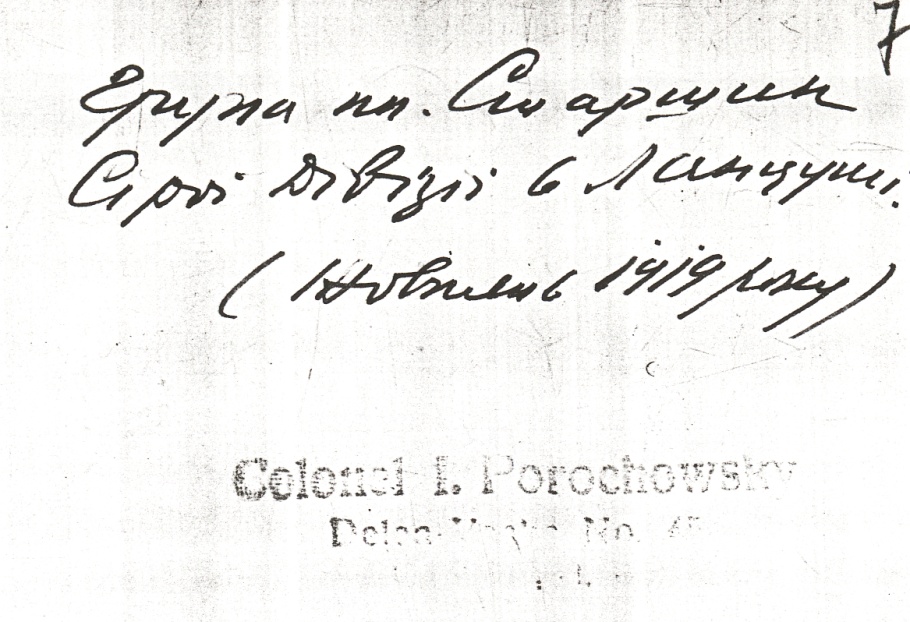 7
Група пп. Старшин
Сірої Дівізії в Ланцуті.
(Жовтень 1919 року)
Colonel I. Porochowsky
No.